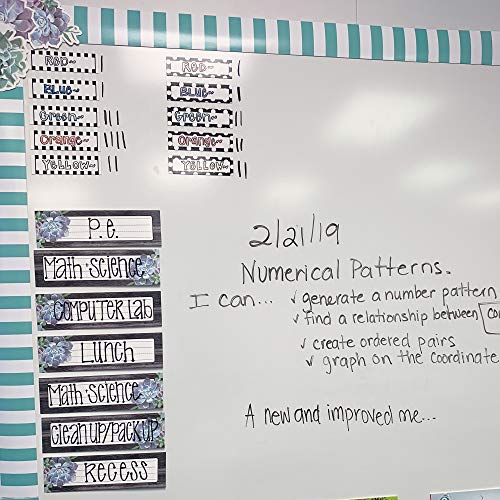 RED~
BLUE~
Green~
Orange~
YELLOW~
RED~
BLUE~
Green~
Orange~
YELLOW~
P.e.
Math+Science
COMPUTER Lab
Lunch
Math+Science
Cleanup/packup
Recess
2/21/19
Numerical Patterns.
I can... ✓ generate a number pattern
✓ find a relationship between
✓ create ordered pairs
✓ graph on the coordinate
A new and improved me...